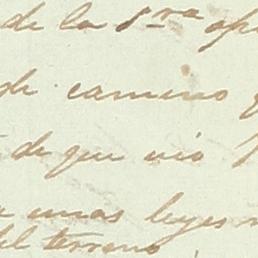 de la 1ra op
de camino
de que vio
unas leyes
del terreno,